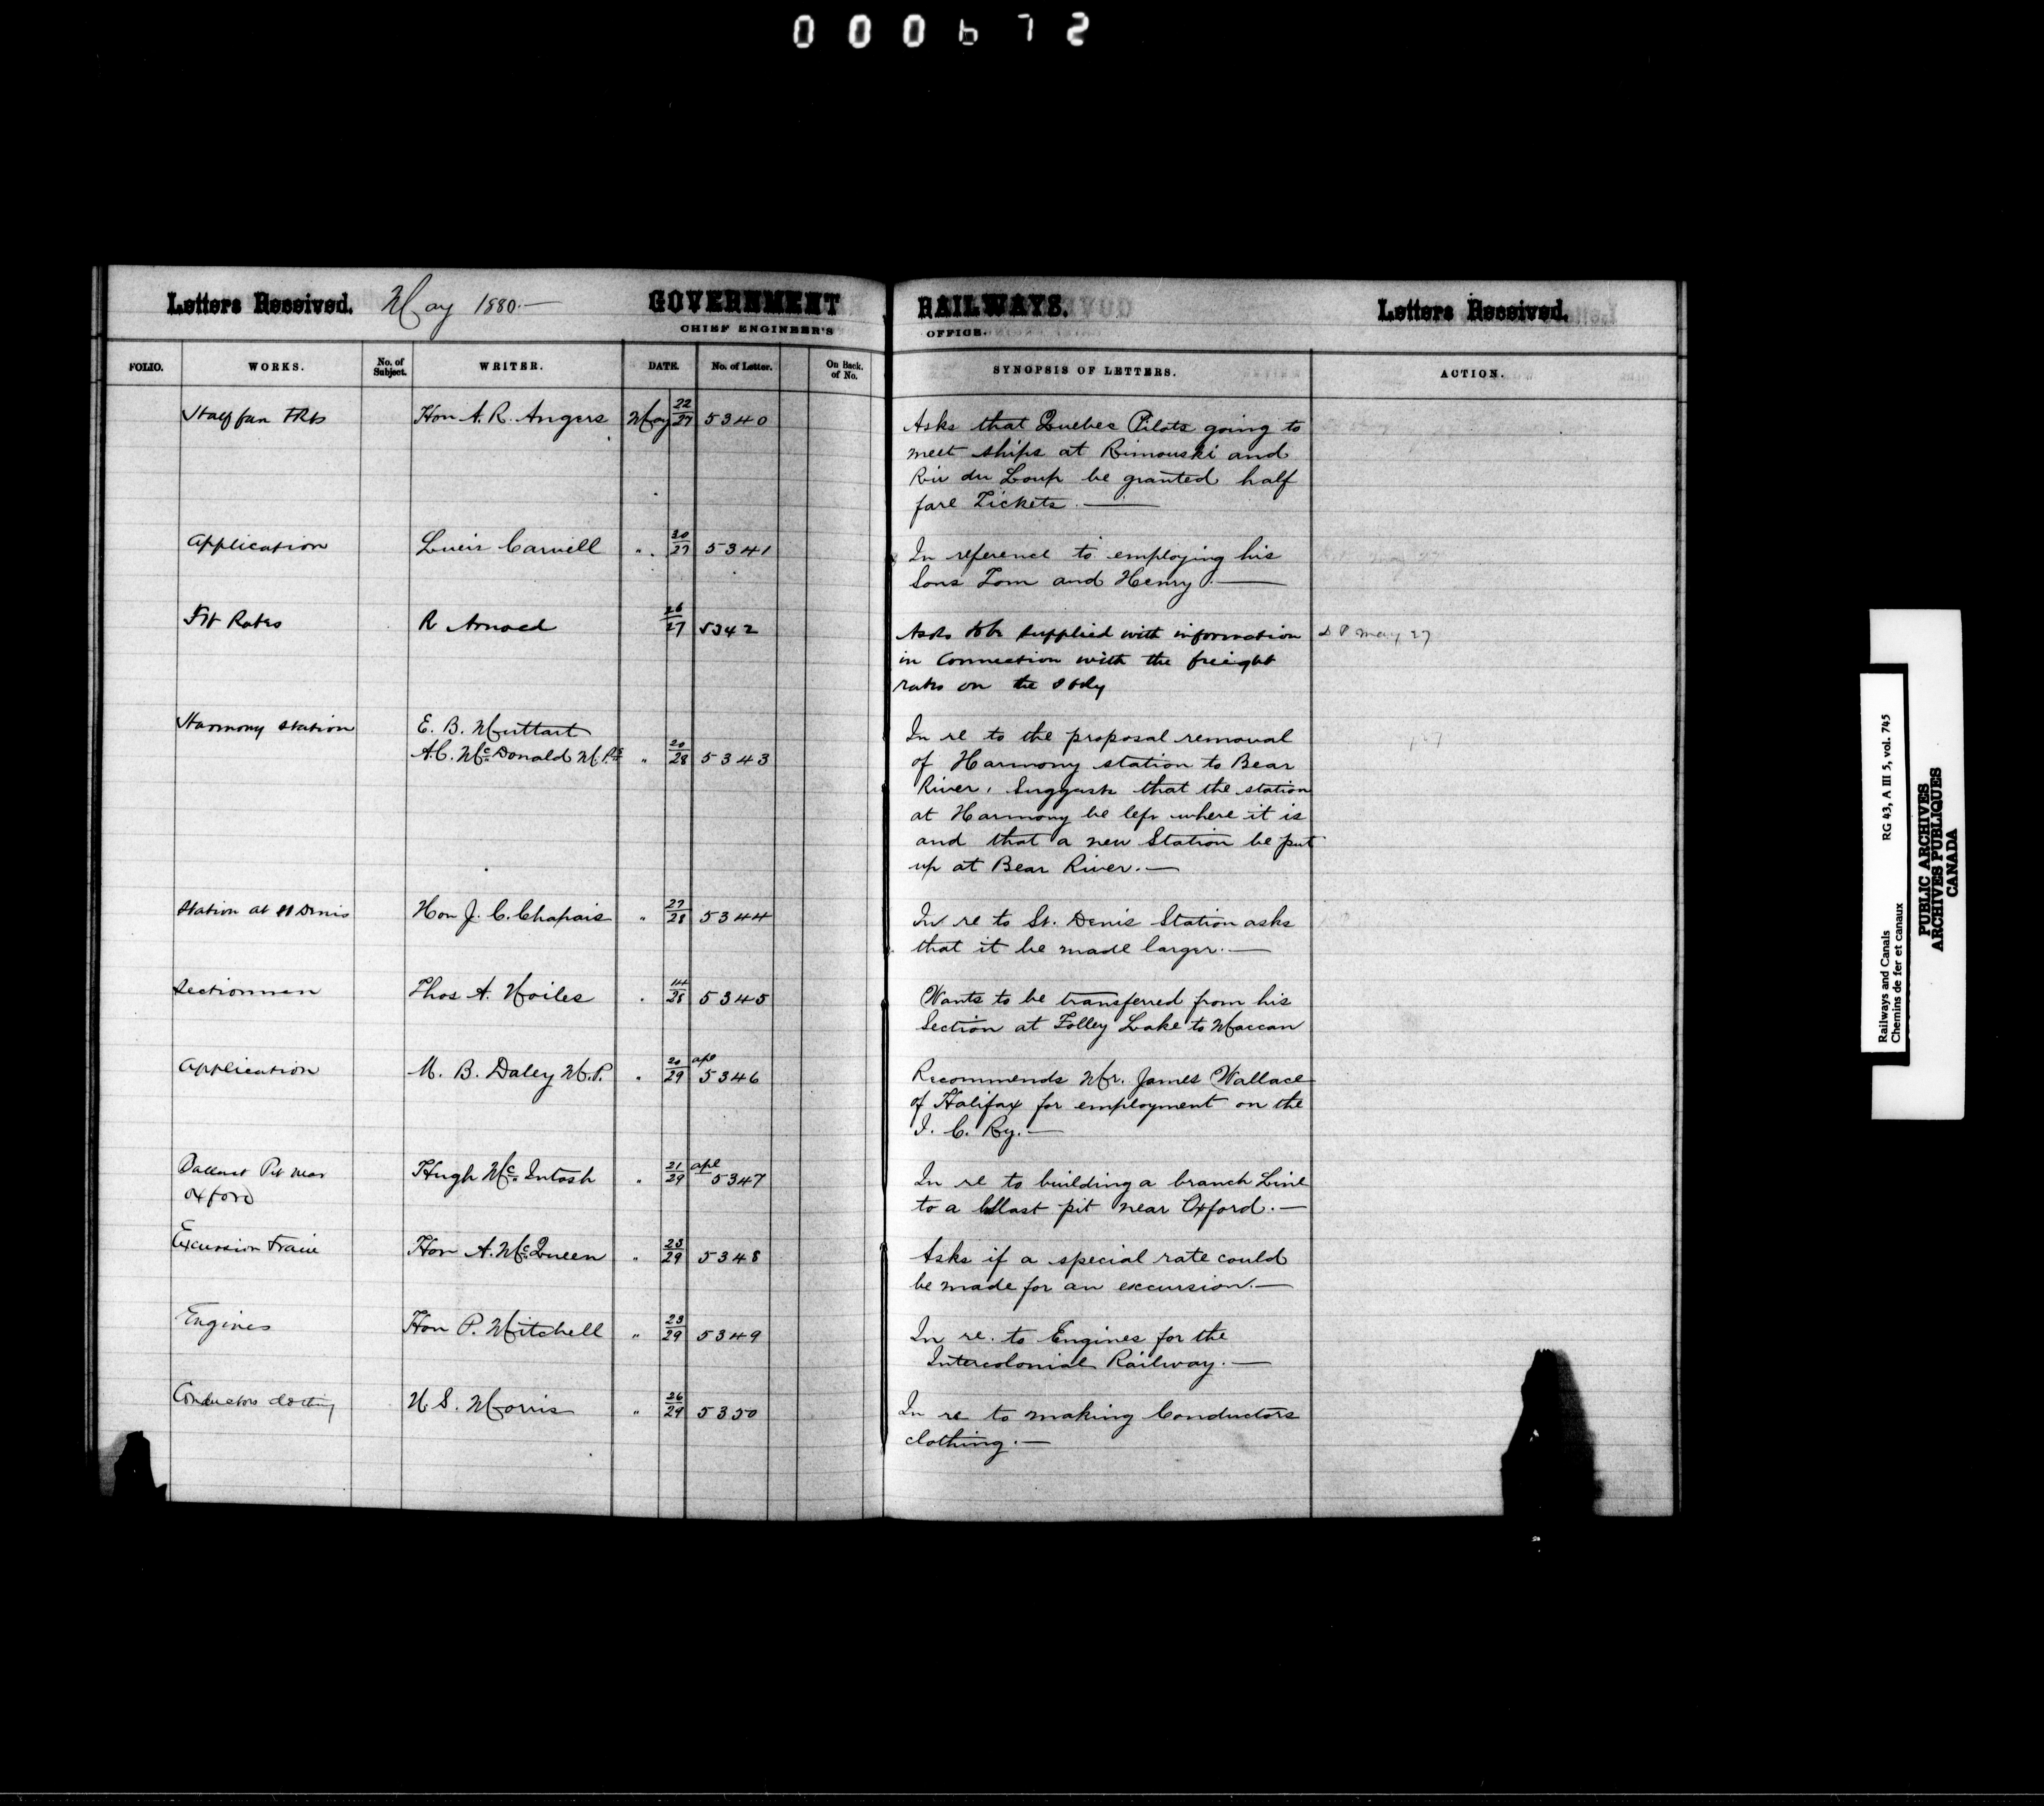 000672
Letters Received. May 1880.— GOVERNMENT RAILWAYS. Letters Received.
CHIEF ENGINEER'S OFFICE.
FOLIO. WORKS. No. of Subject. WRITER. DATE. No. of Letter. On Back of No. SYNOPSIS OF LETTERS. ACTION.
Half fare Hon A. R. Angers May 22/27 5340 Asks that Quebec Pilots going to
meet ships at Rimouski and
Riv du Loup be granted half
fare Tickets.—
Application Carvell " 20/27 5341 In reference to employing his
Sons Tom and Henry.—
Frt Rates R Arnold 26/27 5342 Asks to be supplied with information
in Connection with the freight
rates on the
May 27
Harmony Station E. B. Muttart
A.C. McDonald M.Ps " 20/28 5343 In re to the proposal removal
of Harmony station to Bear
River. Suggests that the station
at Harmony be left where it is
and that a new Station be put
up at Bear River.—
Station at St Denis Hon J. C. Chapais " 27/28 5344 In re to St. Denis Station asks
that it be made larger.—
Sectionmen Thos A. Noiles " 14/28 5345 Wants to be transferred from his
Section at Folley Lake to Maccan
Application M. B. Daley M.P. " 20/29 apl 5346 Recommends Mr. James Wallace
of Halifax for employment on the
I. C. Ry.—
Ballast Pit near
Oxford
Hugh McIntosh " 21/29 apl 5347 In re to building a branch Line
to a bllast pit near Oxford.—
Excursion train Hon A. McQueen " 25/29 5348 Asks if a special rate could
be made for an excursion.—
Engines Hon P. Mitchell " 23/29 5349 In re. to Engines for the
Intercolonial Railway.—
Conductors clothing S. Morris " 26/29 5350 In re to making Conductors
clothing.—
Railways and Canals RG 43, A III 5, vol. 745
Chemins de fer et canaux
PUBLIC ARCHIVES
ARCHIVES PUBLIQUES
CANADA